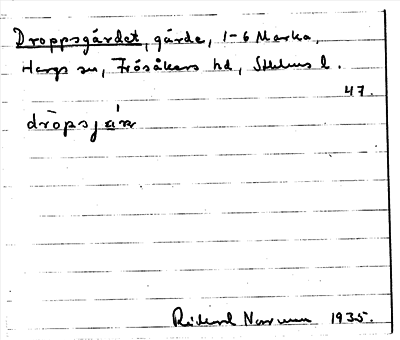 Droppsgärdet, gärde, 1-6 Marka,
Hargs sn, Frösåkers hd, Sthlms l.
47.
dròpsjæ̀ṛ
Rickard Norrman 1935.